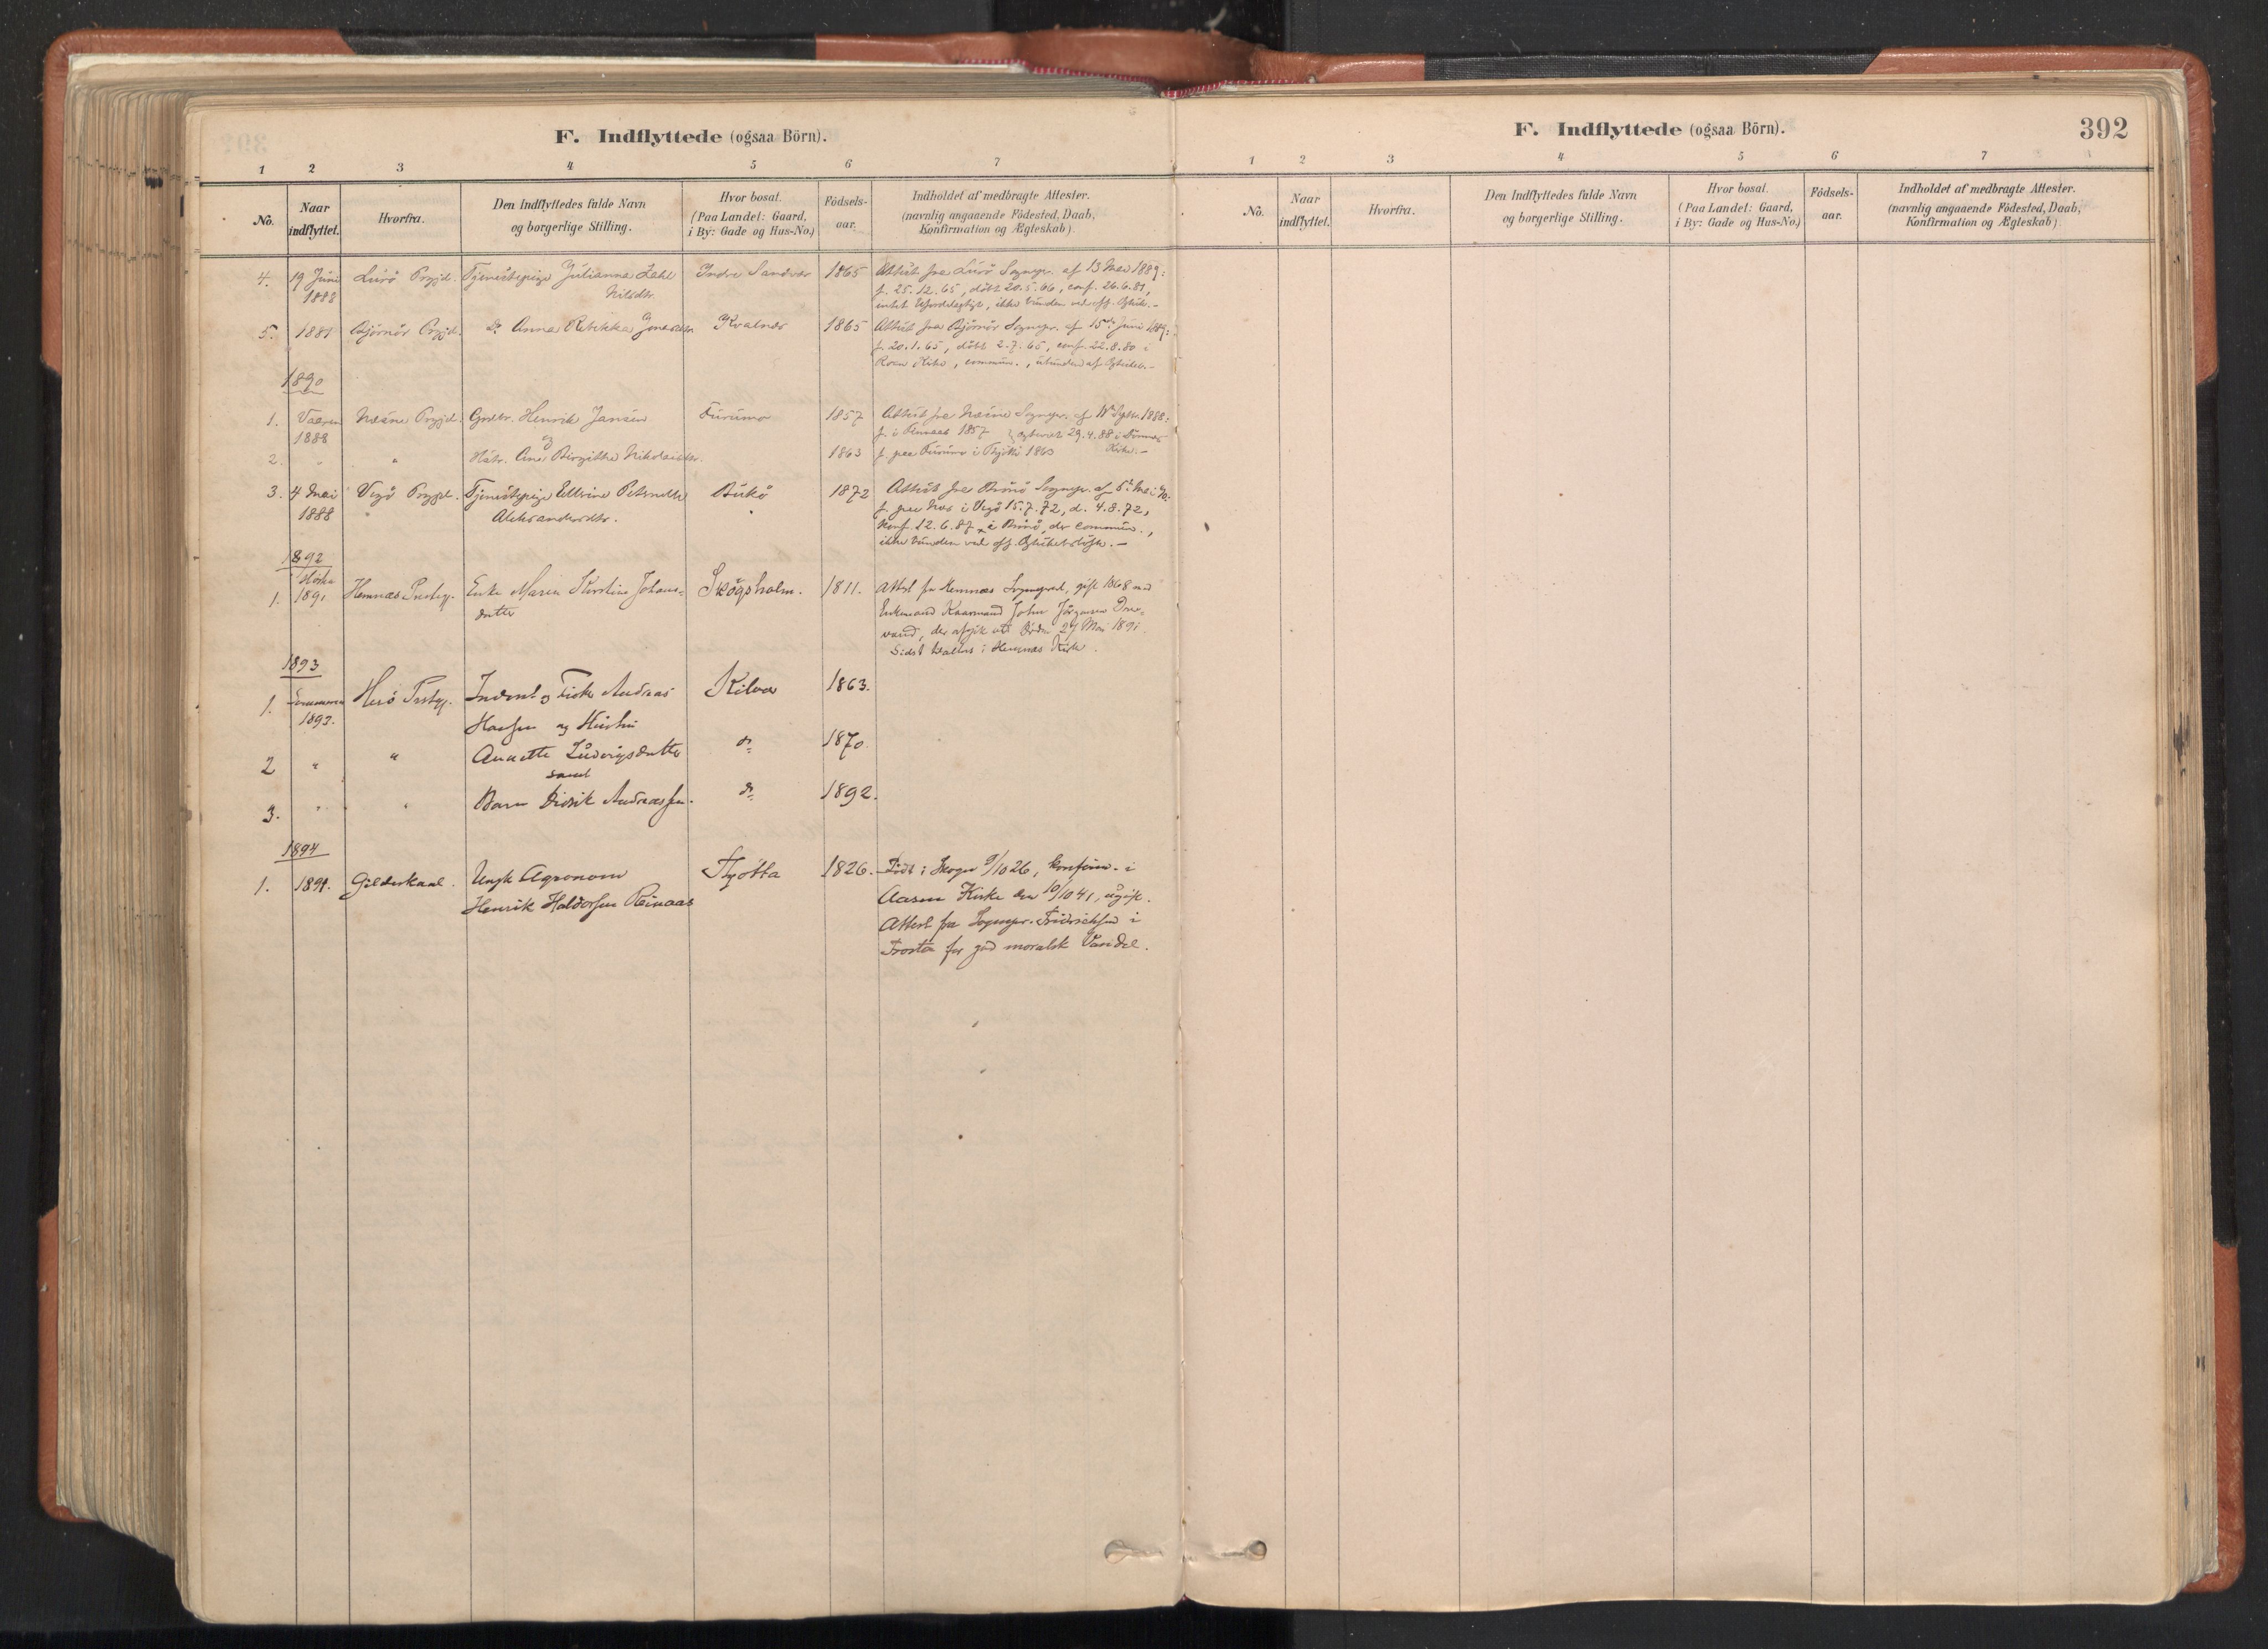 F. Indflyttede (ogsaa Börn).
1 2 3 4 5 6 7
No. Naar indflyttet. Hvorfra. Den Indflyttedes fulde Navn og borgerlige Stilling. Hvor bosat. (Paa Landet: Gaard, i By: Gade og Hus-No.) Födsels-aar. Indholdet af medbragte Attester. (navnlig angaaende Födested, Daab, Konfirmation og Ægteskab)
4. 19 Juni Lurö Prgjd. Tjenestepige Julianna Indre Sandvær 1865 Attest fra Lurö Sognepr. af 13 Mai 1889:
1888 Nilsdtr. f. 25.12.65, döbt 20.5.66, conf. 26.6.81,
intet ikke bunden ved off.
5. 1889 Björnör Prgjd. do Anna Rebekka Kvalnes 1865 Attest fra Björnör Sognepr. af 15de Juni 1889:
f. 20.1.65, döbt 2.7.65, conf. 22.8.80 i
Kirke, commun.,
1890
1. Vaaren Næsne Prgjd. Henrik Jansen Furumo 1857 Attest fra Næsne Sognepr. af Septr. 1888:
1888 og f. i 1857 29.4.88 i Dönnes
2. " " Hstr. Ane Birgitte Nikolaidtr. 1863 f. paa Furumo i Tjötta 1863 Kirke.-
3. 4 Mai Vegö Prgjd. Tjenestepige Ellevine Petrnelle Bukö 1872 Attest fra Brönö Sognepr. af Mai
1888 Aleksandersdtr. f. paa i Vegö 15.7.72, d. 4.8.72,
konf. 12.6.87 i Brönö, der commun.,
ikke bunden ved off.
1892
1. 1891 Hemnæs Prestegj. Enke Maren Kirstine Johans- Skogsholm. 1811. Attest fra Hemnæs Sognepræst, gift 1868 med
datter Enkemand Kaarmand John Jörgensen
vand, der afgik ved Döden 27 Mai 1891.
Sidst i Hemnæs Kirke.
1893
1. Sommeren Herö Prstgj. Inderst og Fisker Andreas Kilvær 1863.
1893. Hansen og Hustru
2 " " Anette Ludvigsdatter do 1870.
samt
3. " " Barn Didrik Andreassen. do 1892.
1894
1. 1891. Gildeskaal. Ungk. Agronom Tjötta 1826. Födt i Skogn 9/10 26, konfirm. i
Henrik Haldorsen Reinaas Aasen Kirke den 10/10 41, ugift.
Attest fra Sognepr. Fridrichsen i
Frosta for god moralsk Vandel.
F. Indflyttede (ogsaa Börn).
392
1 2 3 4 5 6 7
No. Naar indflyttet. Hvorfra. Den Indflyttedes fulde Navn og borgerlige Stilling. Hvor bosat. (Paa Landet: Gaard, i By: Gade og Hus-No.) Födsels-aar. Indholdet af medbragte Attester. (navnlig angaaende Födested, Daab, Konfirmation og Ægteskab)